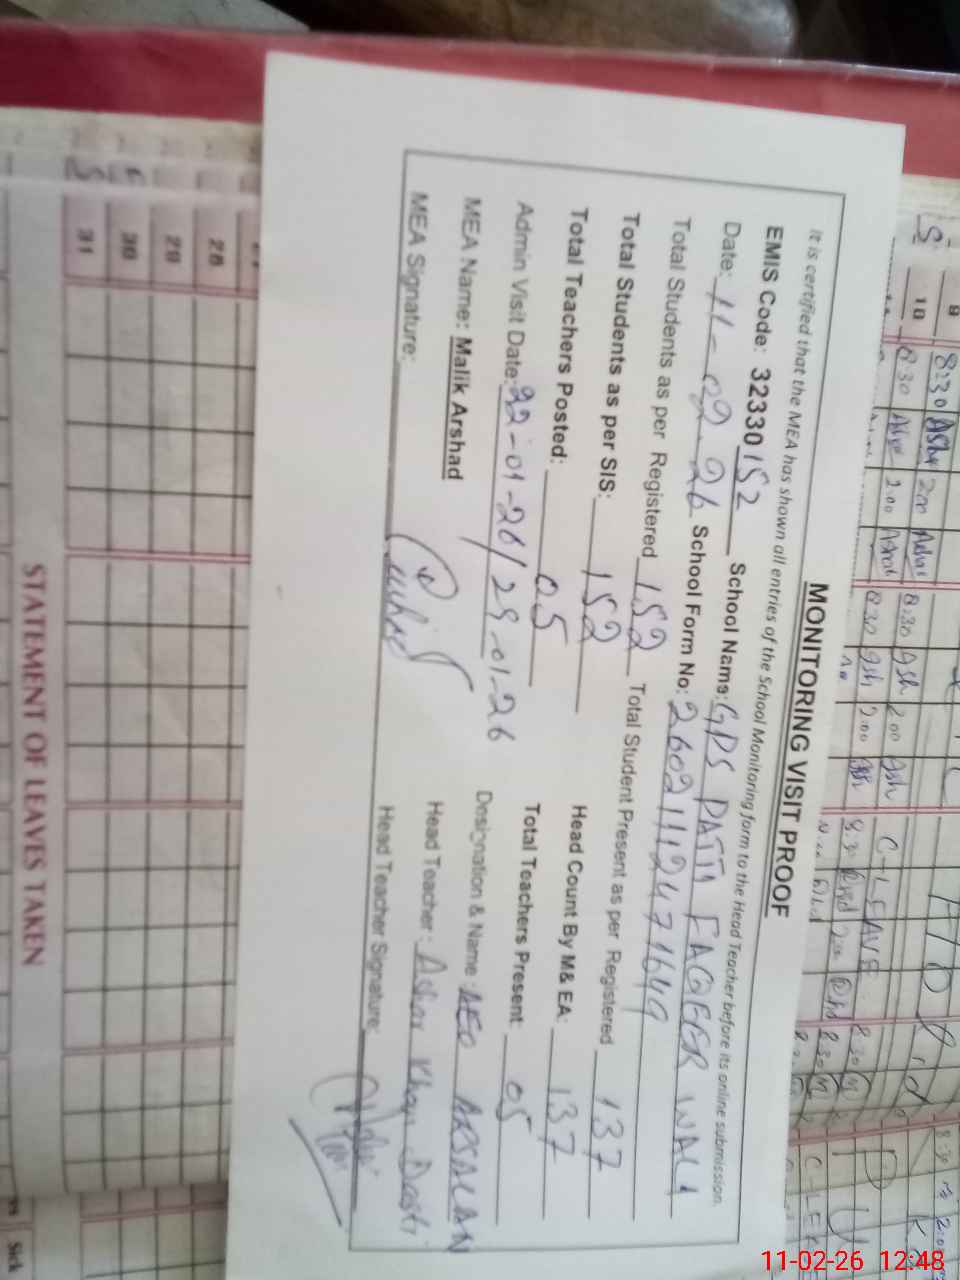 MONITORING VISIT PROOF
It is certified that the MEA has shown all entries of the School Monitoring form to the Head Teacher before its online submission.
EMIS Code: 32330152 School Name: GPS PATTI FAQEER WALI
Date: 11-02-26 School Form No: 260211124716449
Total Students as per Registered 152 Total Student Present as per Registered 137
Total Students as per SIS: 152 Head Count By M& EA: 137
Total Teachers Posted: 05 Total Teachers Present: 05
Admin Visit Date: 22-01-26/29-01-26 Designation & Name: AEO ARSALAN
MEA Name: Malik Arshad Head Teacher: Asher Khan Dasti
MEA Signature: Head Teacher Signature:
STATEMENT OF LEAVES TAKEN
28
29
30
31
9 8:30 2:00 8:30 gsh 2:00 gsh C-LEAVE 8:30
10 8:30 2:00 8:30 gsh 2:00 gsh 8:30
Sick
11-02-26 12:48